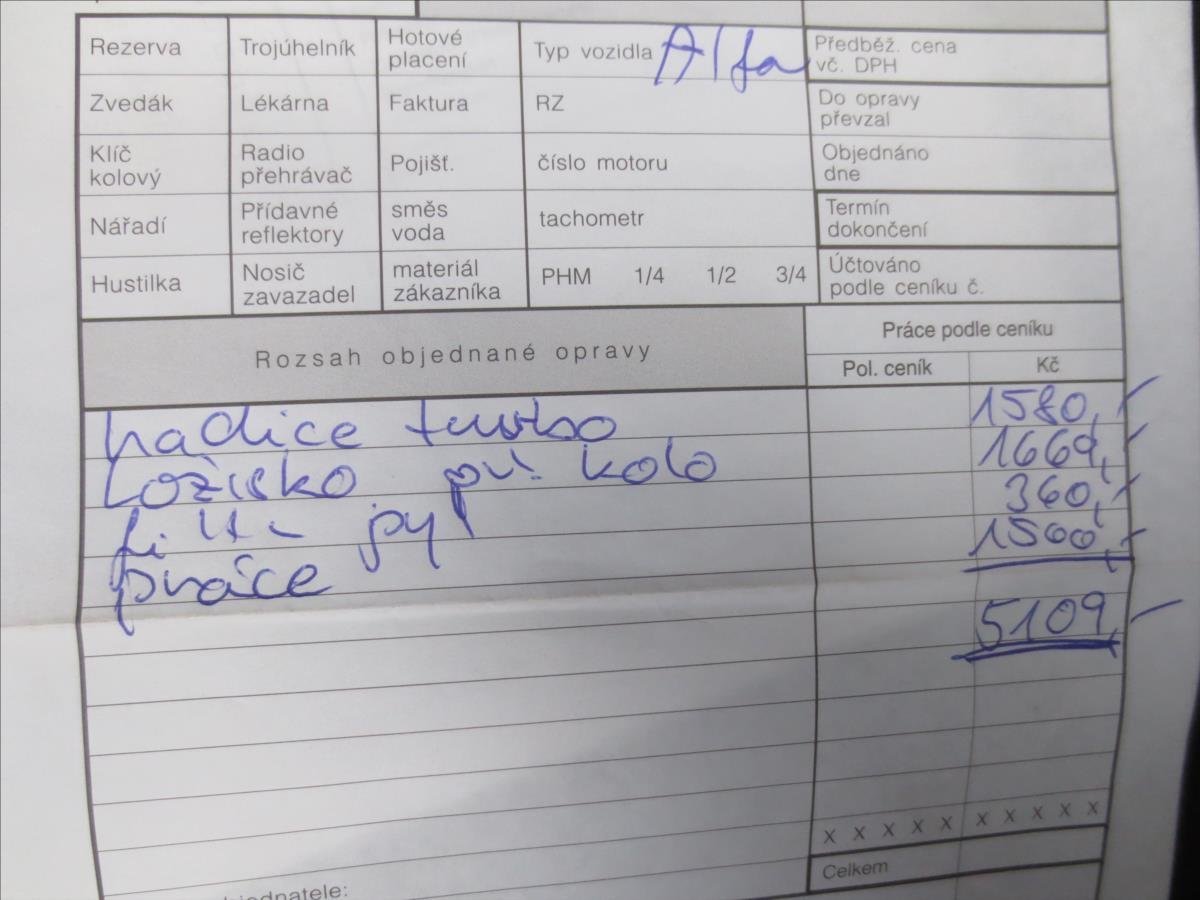 Rezerva Trojúhelník Hotové placení Typ vozidla Alfa Předběž. cena vč. DPH
Zvedák Lékárna Faktura RZ Do opravy převzal
Klíč kolový Radio přehrávač Pojišť. číslo motoru Objednáno dne
Nářadí Přídavné reflektory směs voda tachometr Termín dokončení
Hustilka Nosič zavazadel materiál zákazníka PHM 1/4 1/2 3/4 Účtováno podle ceníku č.
Rozsah objednané opravy Práce podle ceníku
Pol. ceník Kč
hadice turbo 1580,-
Ložisko př. kolo 1669,-
filtr pyl 360,-
práce 1500,-
5109,-
x x x x x x x x x x
Celkem
bjednatele: